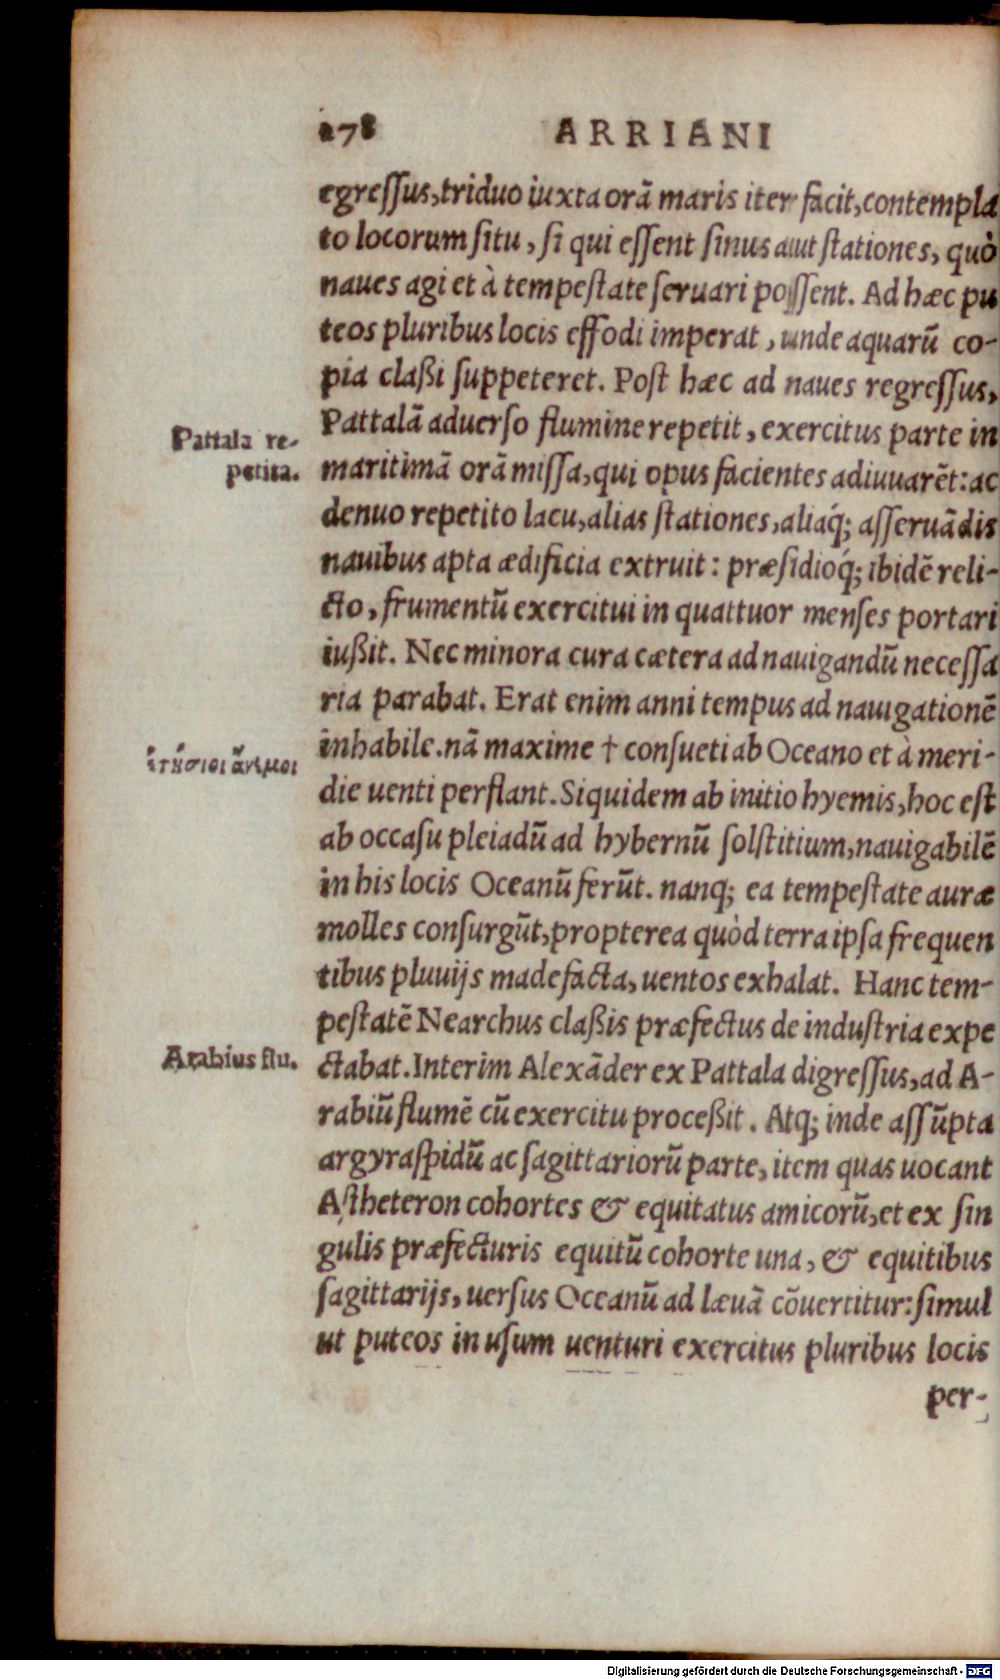 278 ARRIANI
egressus, triduo iuxta orã maris iter facit, contempla
to locorum situ, si qui essent sinus aut stationes, quò
naues agi et à tempestate seruari possent. Ad hæc pu
teos pluribus locis effodi imperat, unde aquarũ co-
pia claßi suppeteret. Post hæc ad naues regressus,
Pattalã aduerso flumine repetit, exercitus parte in
Pattala re-
petita.
maritimã orã missa, qui opus facientes adiuuarẽt: ac
denuo repetito lacu, alias stationes, aliaq́; asseruãdis
nauibus apta ædificia extruit: præsidioq́; ibidẽ reli-
cto, frumentũ exercitui in quattuor menses portari
iußit. Nec minora cura cætera ad nauigandũ necessa
ria parabat. Erat enim anni tempus ad nauigationẽ
inhabile. nã maxime † consueti ab Oceano et à meri-
ἐτήσιοι ἄνεμοι
die uenti perflant. Siquidem ab initio hyemis, hoc est
ab occasu pleiadũ ad hybernũ solstitium, nauigabilẽ
in his locis Oceanũ ferũt. nanq; ea tempestate auræ
molles consurgũt, propterea quòd terra ipsa frequen
tibus pluuijs madefacta, uentos exhalat. Hanc tem-
pestatẽ Nearchus claßis præfectus de industria expe
ctabat. Interim Alexãder ex Pattala digressus, ad A-
Arabius flu.
rabiũ flumẽ cũ exercitu proceßit. Atq; inde assũpta
argyraspidũ ac sagittariorũ parte, item quas uocant
Astheteron cohortes & equitatus amicorũ, et ex sin
gulis præfecturis equitũ cohorte una, & equitibus
sagittarijs, uersus Oceanũ ad læuã cõuertitur: simul
ut puteos in usum uenturi exercitus pluribus locis
per-
Digitalisierung gefördert durch die Deutsche Forschungsgemeinschaft - DFG